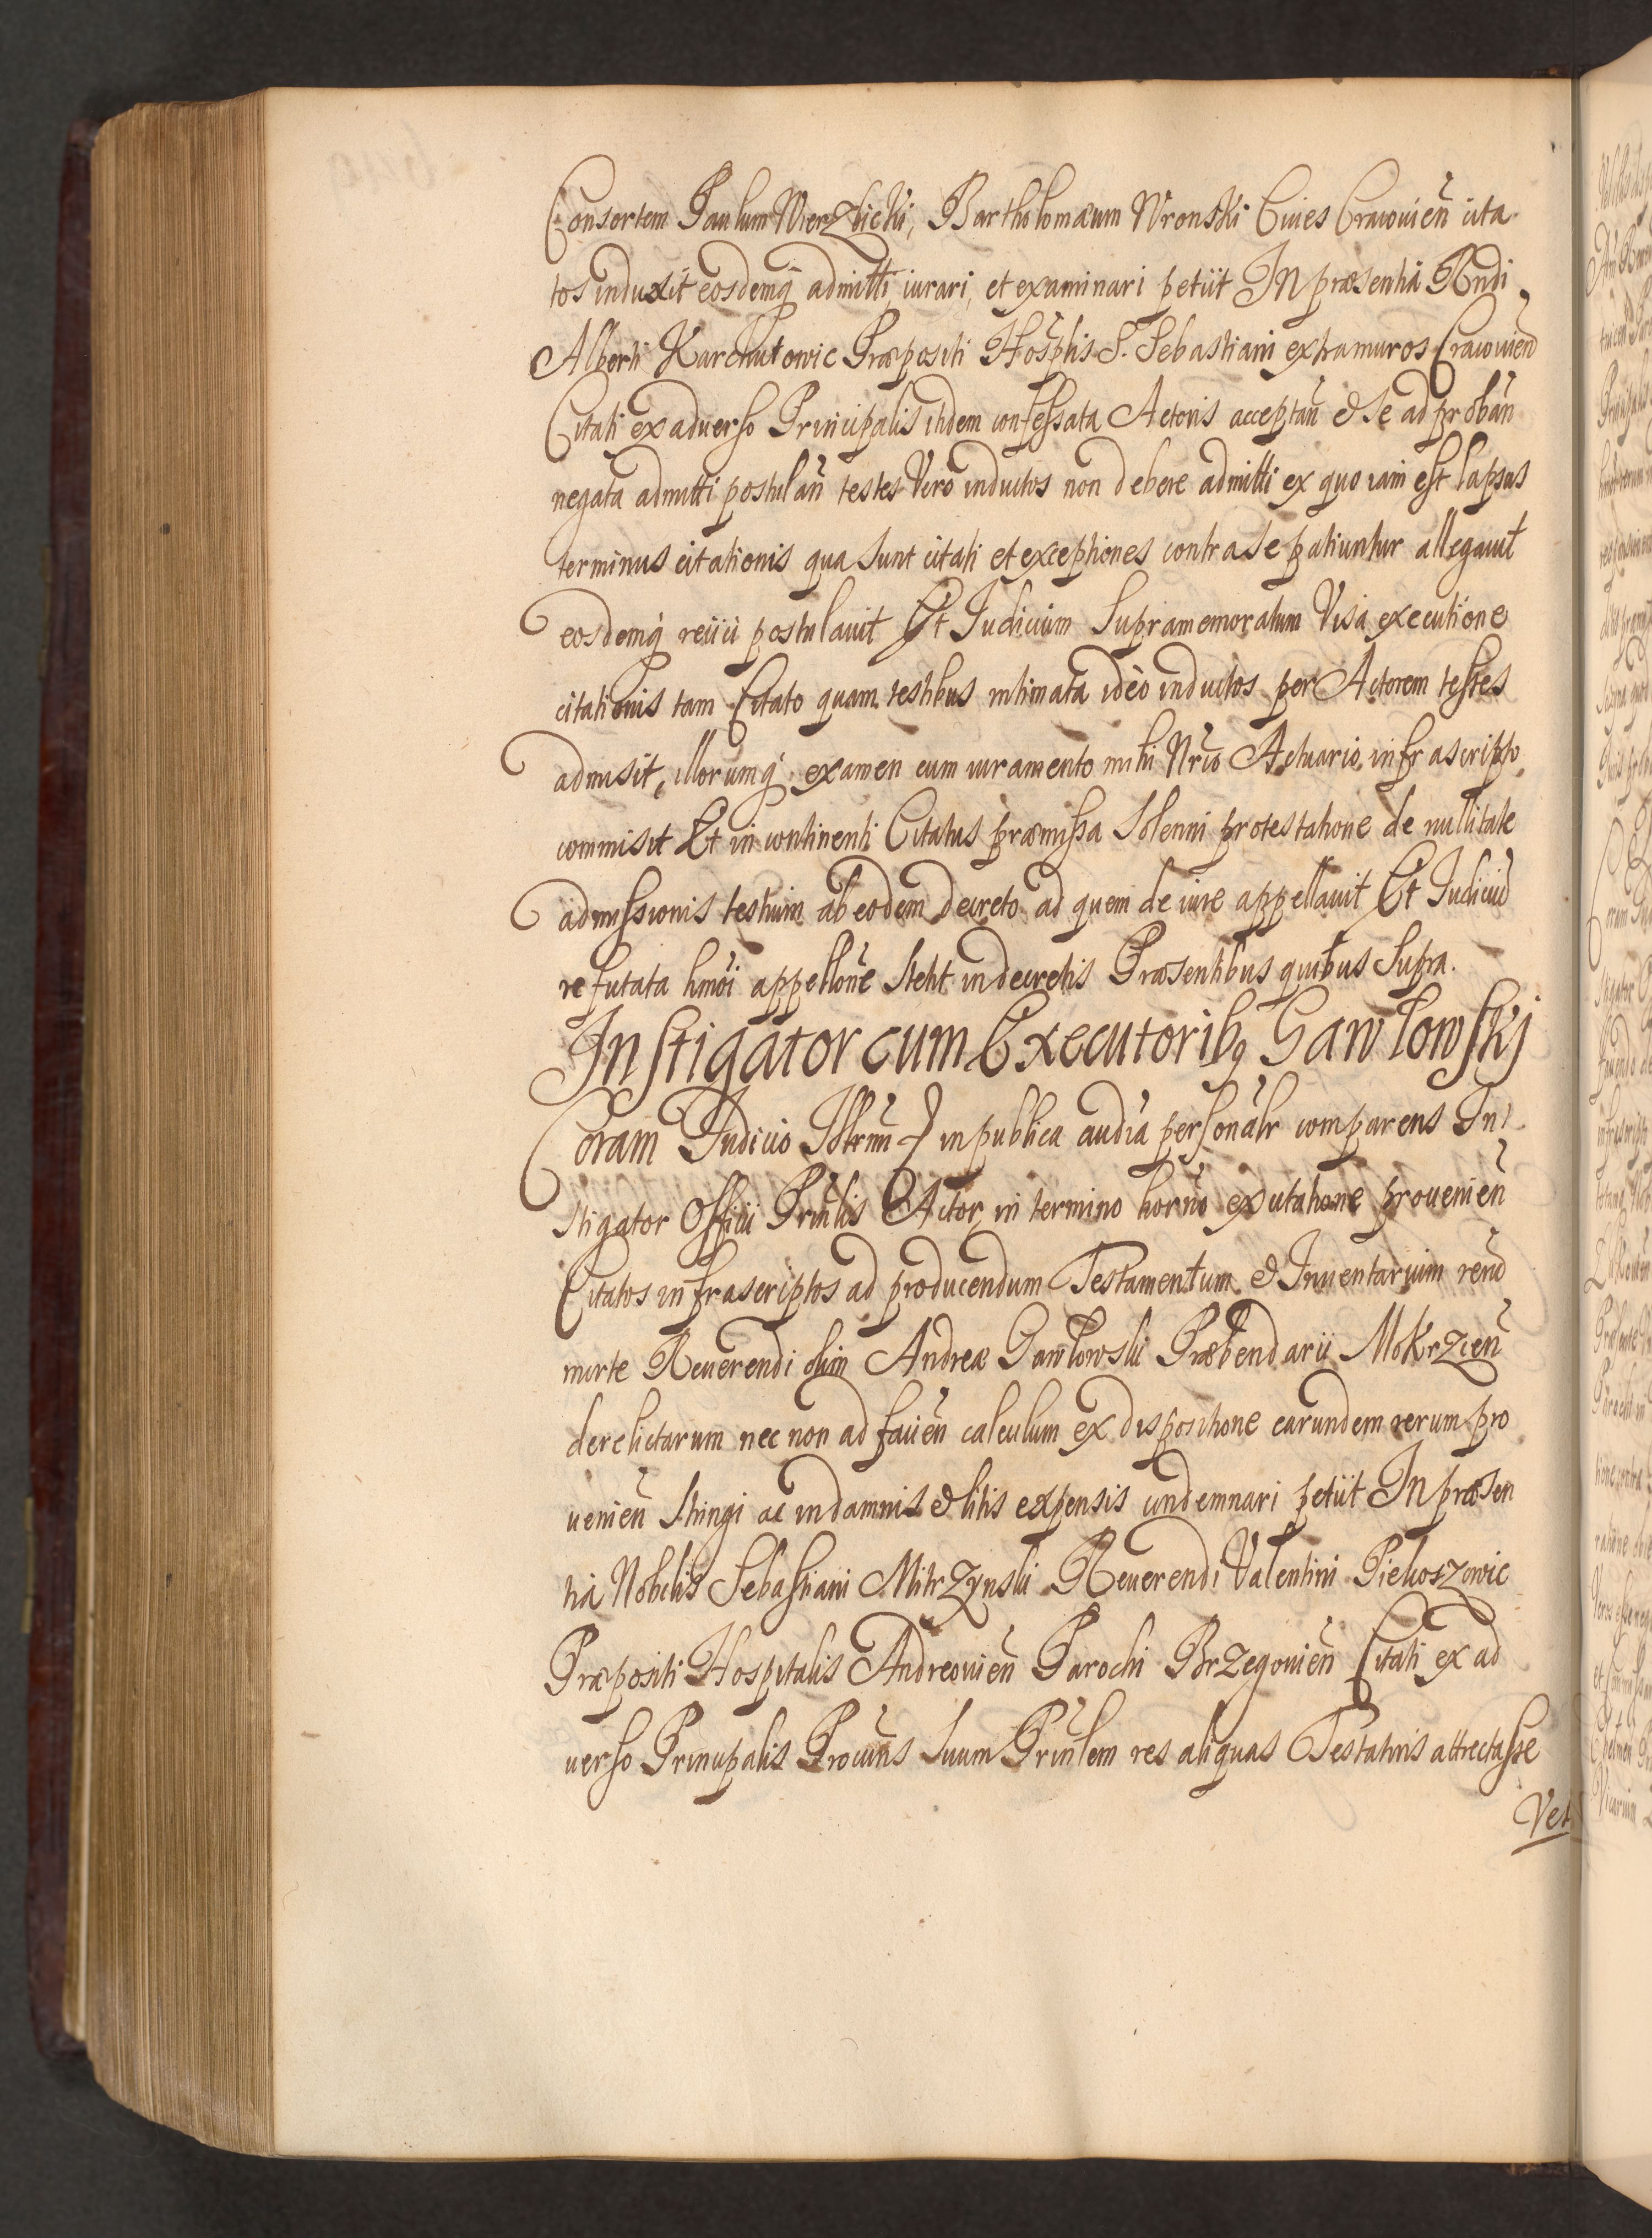 Consortem Paulum Wierzbicki, Bartholomæum Wronski Ciues Cracouień cita
tos induxit eosdemq́ admitti iurari, et examinari petijt In præsentia Rndi
Alberti Karchutowic Præpositi Hosp̃lis S. Sebastiani extra muros Cracouień
Citati ex aduerso Principalis itidem confessata Actoris acceptań & se ad probań
negata admitti postulań testes Vero inductos non debere admitti ex quo iam est lapsus
terminus citationis qua sunt citati et exceptiones contra se patiuntur allegauit
eosdemq́ reiici postulauit Et Iudicium Supramemoratum Visa executione
citationis tam Citato quam testibus intimata ideo inductos per Actorem testes
admisit, illorumq́ examen cum iuramento mihi Nrio Actuario infrascripto
commisit Et in continenti Citatus præmissa Solenni protestatione de nullitate
admissionis testium ab eodem decreto ad quem de iure appellauit Et Iudiciũ
refutata hmõi appellõne Stetit in decretis Præsentibus quibus Supra.
Instigator cum Executorib9 Gawłowskj
Coram Iudicio in publica audia personalr comparens In
stigator Officii Prinlis Actor, in termino horno ex citatione prouenień
Citatos infrascriptos ad producendum Testamentum & Inuentarium rerũ
morte Reuerendi olim Andreæ Gawłowski Præbendarii Mokrzień
derelictarum nec non ad facień calculum ex dispositione earundem rerum pro
uenień Stringi ac in damnis & litis expensis condemnari petijt In præsen
tia Nobilis Sebastiani Mitrzynski Reuerendi Valentini Piekoszowic
Præpositi Hospitalis Andreouień Parochi Brzegouień Citati ex ad
uerso Principalis Procurs Suum Prinlem res aliquas Testatoris attrectasse
Vel